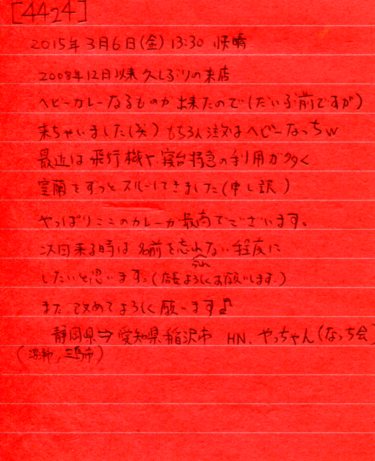 [4424]
2015年3月6日(金) 13:30 快晴
2008年12月以来 久しぶりの来店
ヘビーカレーなるものが出来たので(だいぶ前ですが)
来ちゃいました(笑) もちろん注文はヘビーなっちw
最近は飛行機や寝台特急の利用が多く
室蘭をずっとスルーしてきました(申し訳)
やっぱりここのカレーが最高でございます。
次回来る時は名前を忘れられない程度に
したいと思います。(店長よろしくお願いします。)
また改めてよろしく願います♪
静岡県⇒愛知県稲沢市 HN. やっちゃん(なっち会)